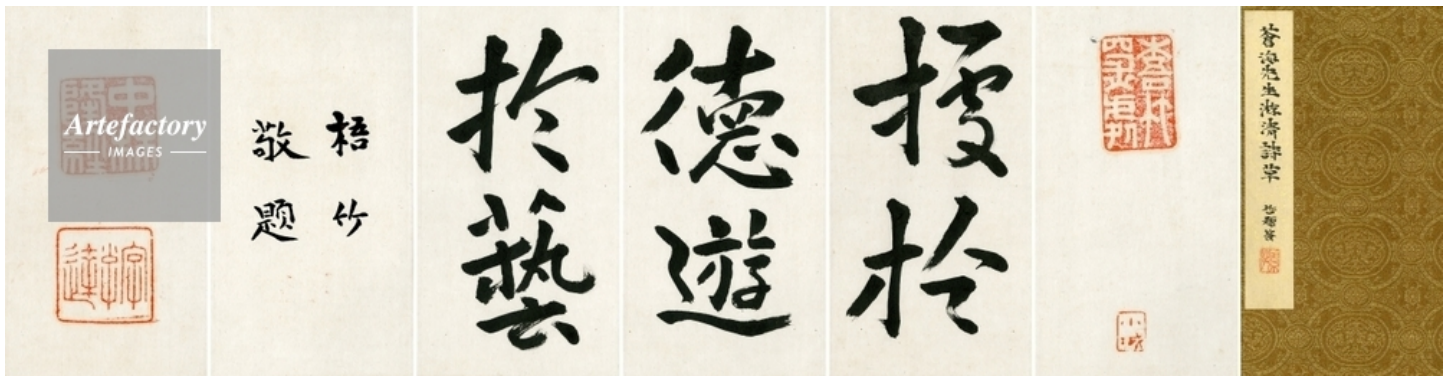 蒼海先生 詩草
小城
據於
德遊
於藝
梧竹
敬題
Artefactory
IMAGES